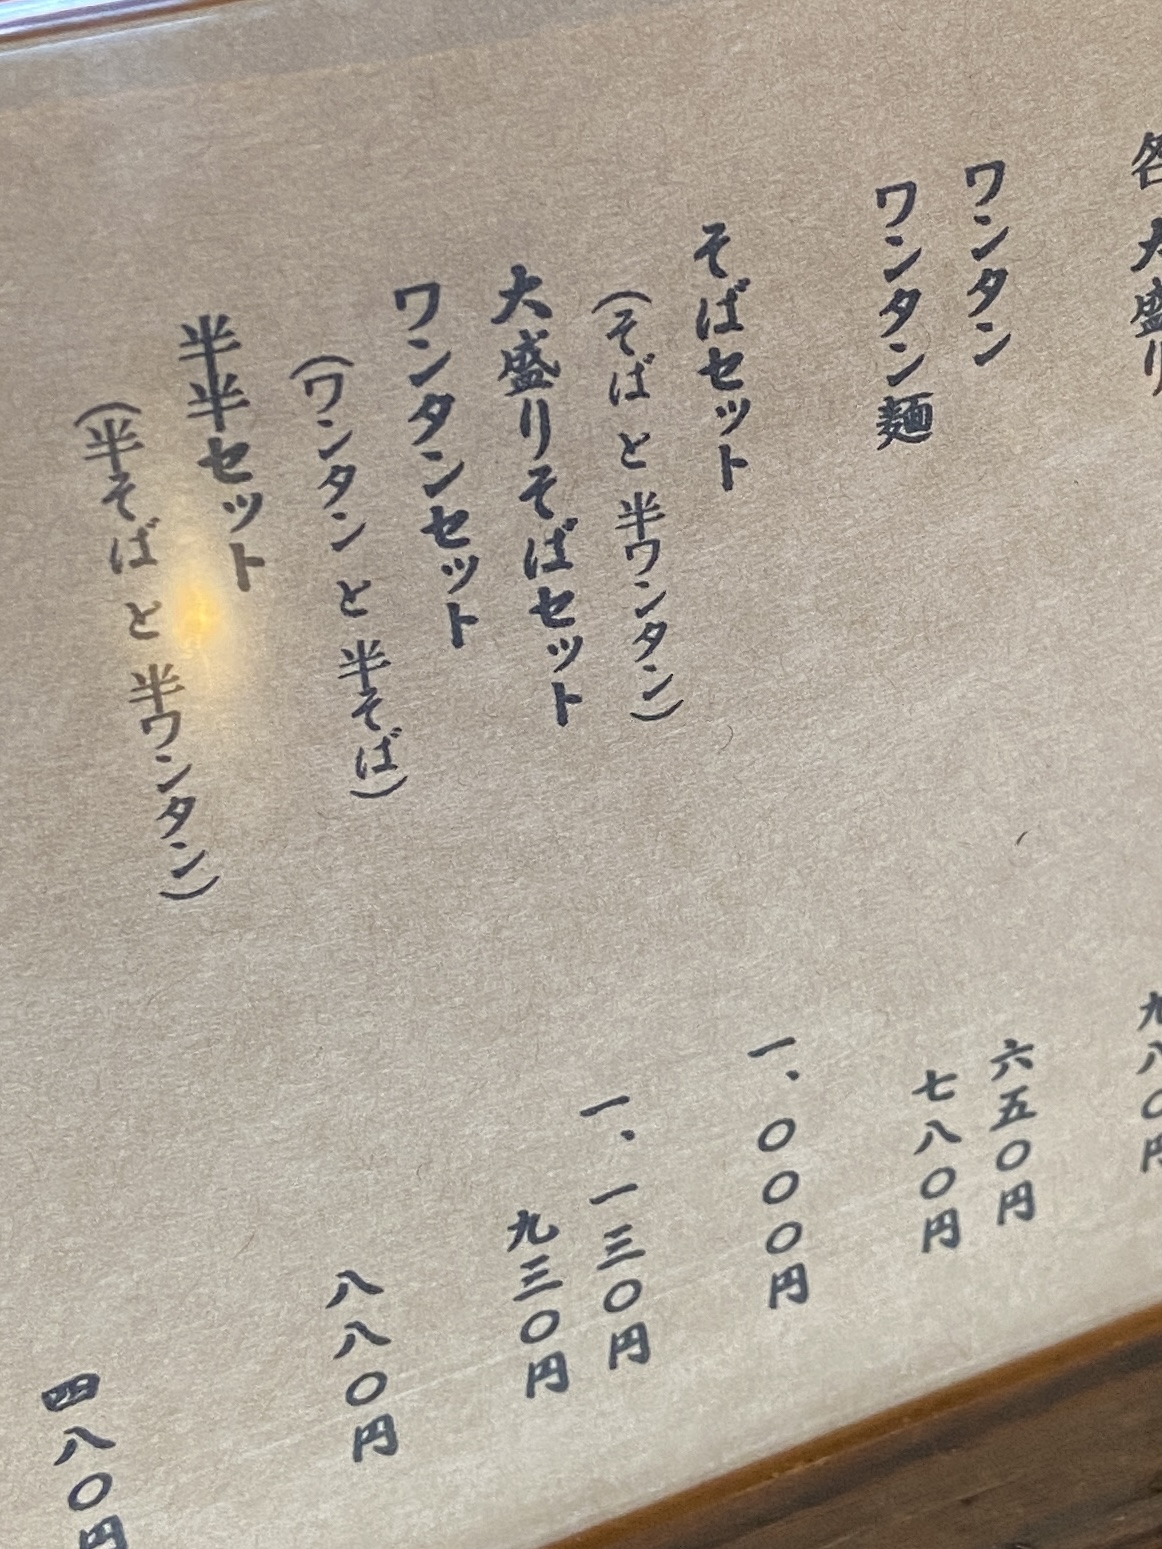 各大盛り 九八〇円
ワンタン 六五〇円
ワンタン麺 七八〇円
そばセット 一、〇〇〇円
(そば と 半ワンタン)
大盛りそばセット 一、一三〇円
ワンタンセット 九三〇円
(ワンタン と 半そば)
半半セット 八八〇円
(半そば と 半ワンタン)
四八〇円